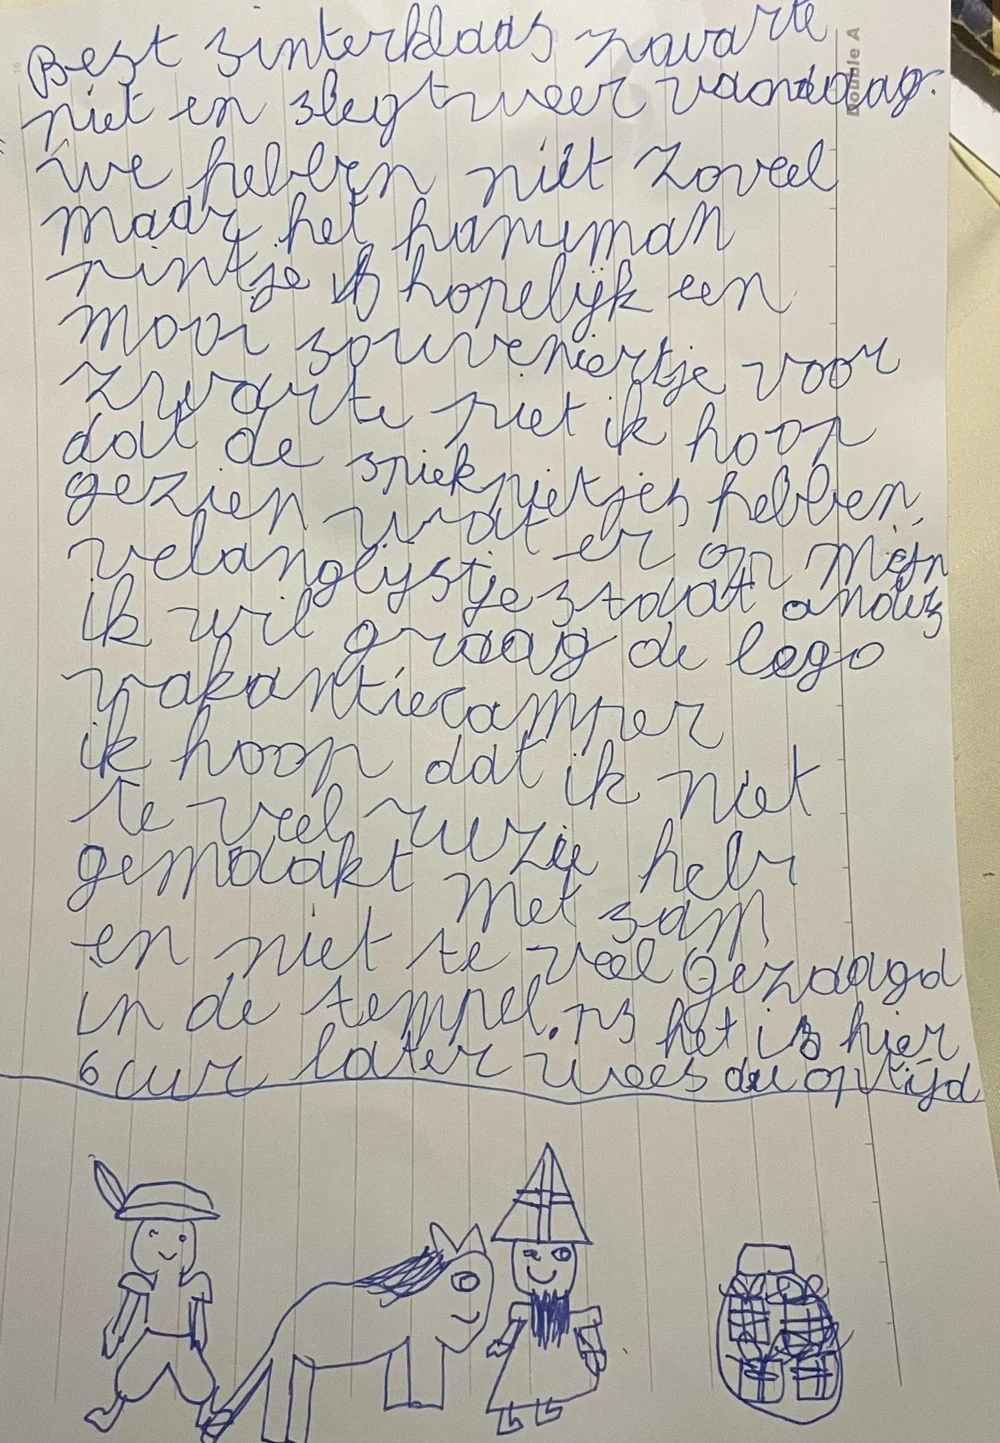 Best sinterklaas zwarte
piet en slegt weer vandaag.
we hebben niet zoveel
maar het hanuman
printje is hopelijk een
mooi souveniertje voor
zwarte piet ik hoop
dat de spiekpietjes hebben
gezien wat er op mijn
velanglijstje staat anders
ik wil graag de lego
vakantiecamper
ik hoop dat ik niet
te veel ruzie heb
gemaakt met sam
en niet te veel gezaagd
in de tempel. ps het is hier
6 uur later wees du optijd
Double A